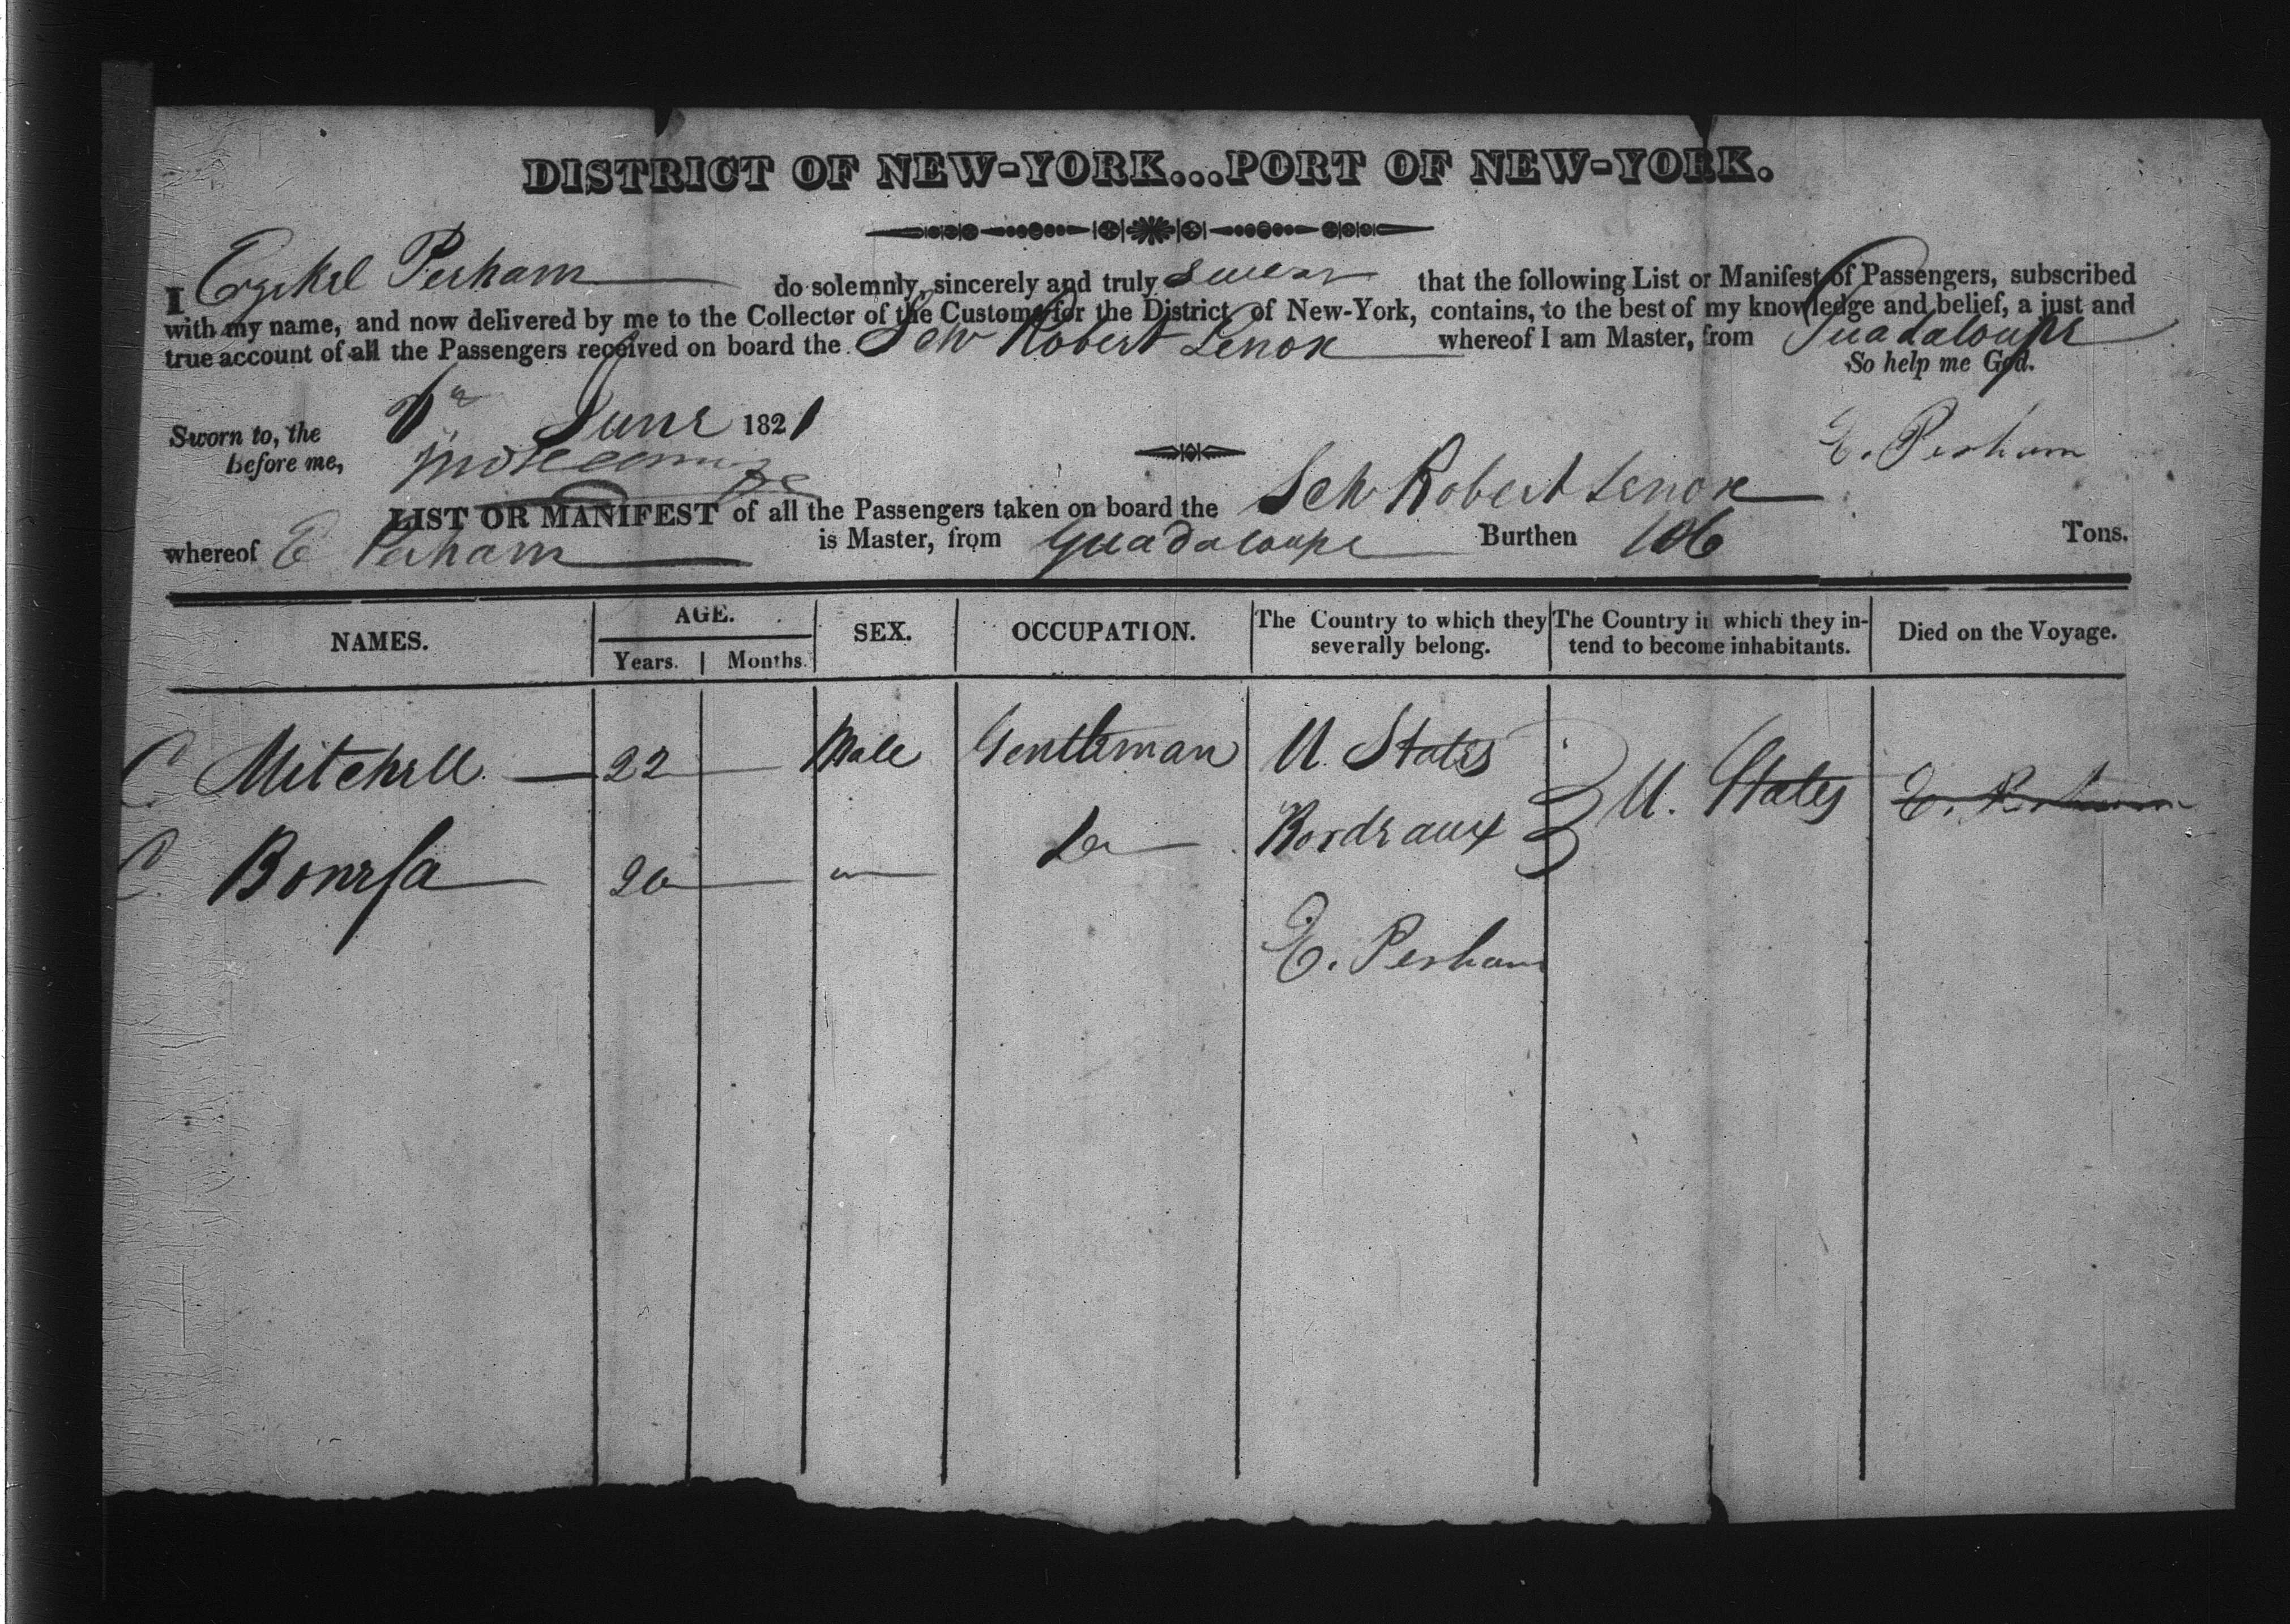 DISTRICT OF NEW-YORK...PORT OF NEW-YORK.
I Ezekel Perham do solemnly, sincerely and truly swear that the following List or Manifest of Passengers, subscribed
with my name, and now delivered by me to the Collector of the Customs for the District of New-York, contains, to the best of my knowledge and belief, a just and
true account of all the Passengers received on board the Schr Robert Lenox whereof I am Master, from Guadaloupe
So help me God.
Sworn to, the June 1821
E. Perham
Before me,
LIST OR MANIFEST of all the Passengers taken on board the Schr Robert Lenox
whereof E Perham is Master, from Guadaloupe Burthen 106 Tons.
NAMES. AGE. SEX. OCCUPATION. The Country to which they severally belong. The Country in which they intend to become inhabitants. Died on the Voyage.
Years. Months.
C Mitchell 22 Male Gentleman U. States U. States E. Perham
C 20 Do Bordeaux
E. Perham